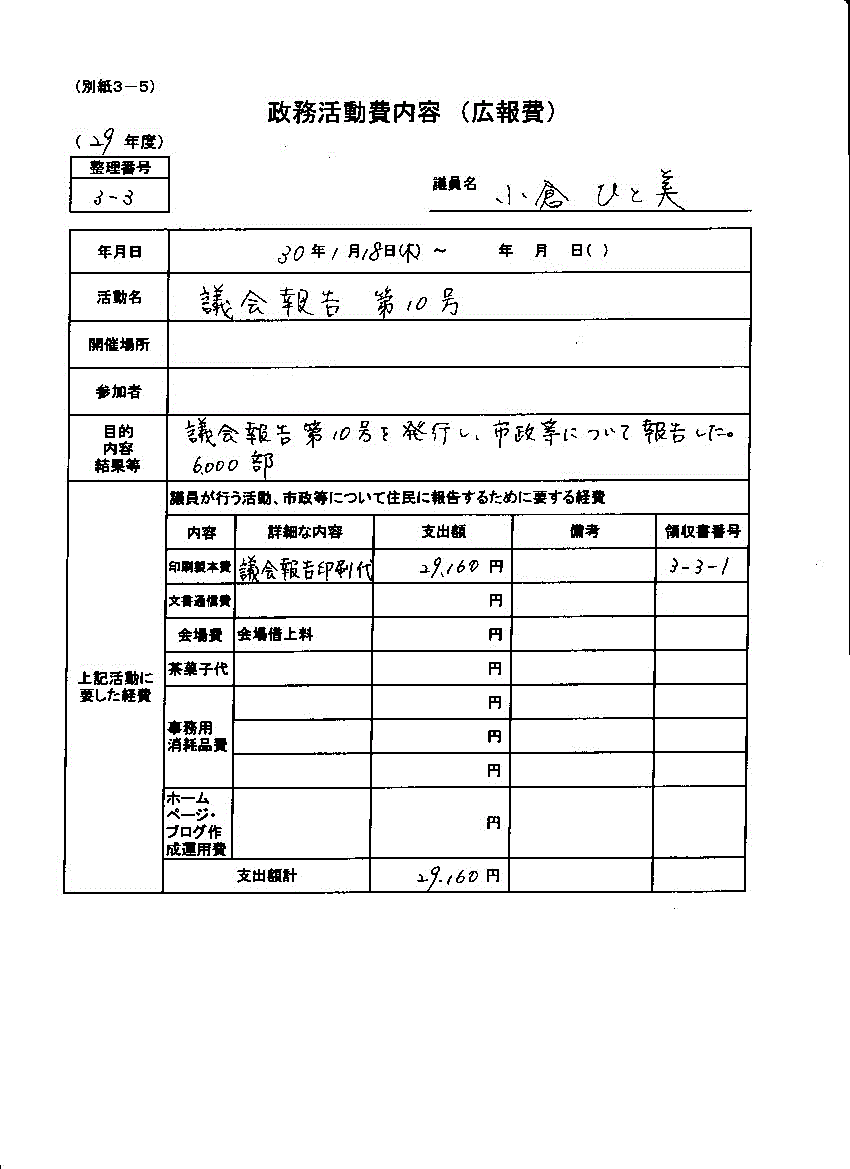 （別紙3－5）
政務活動費内容（広報費）
（29年度）
整理番号
3-3
議員名 小倉 ひと美
年月日 30年1月18日(木) ～ 年 月 日( )
活動名 議会報告 第10号
開催場所
参加者
目的 内容 結果等
議会報告第10号を発行し、市政等について報告した。
6,000部
上記活動に要した経費
議員が行う活動、市政等について住民に報告するために要する経費
内容 詳細な内容 支出額 備考 領収書番号
印刷製本費 議会報告印刷代 29,160円 3-3-1
文書通信費 円
会場費 会場借上料 円
茶菓子代 円
事務用消耗品費 円
円
円
ホームページ・ブログ作成運用費 円
支出額計 29,160円